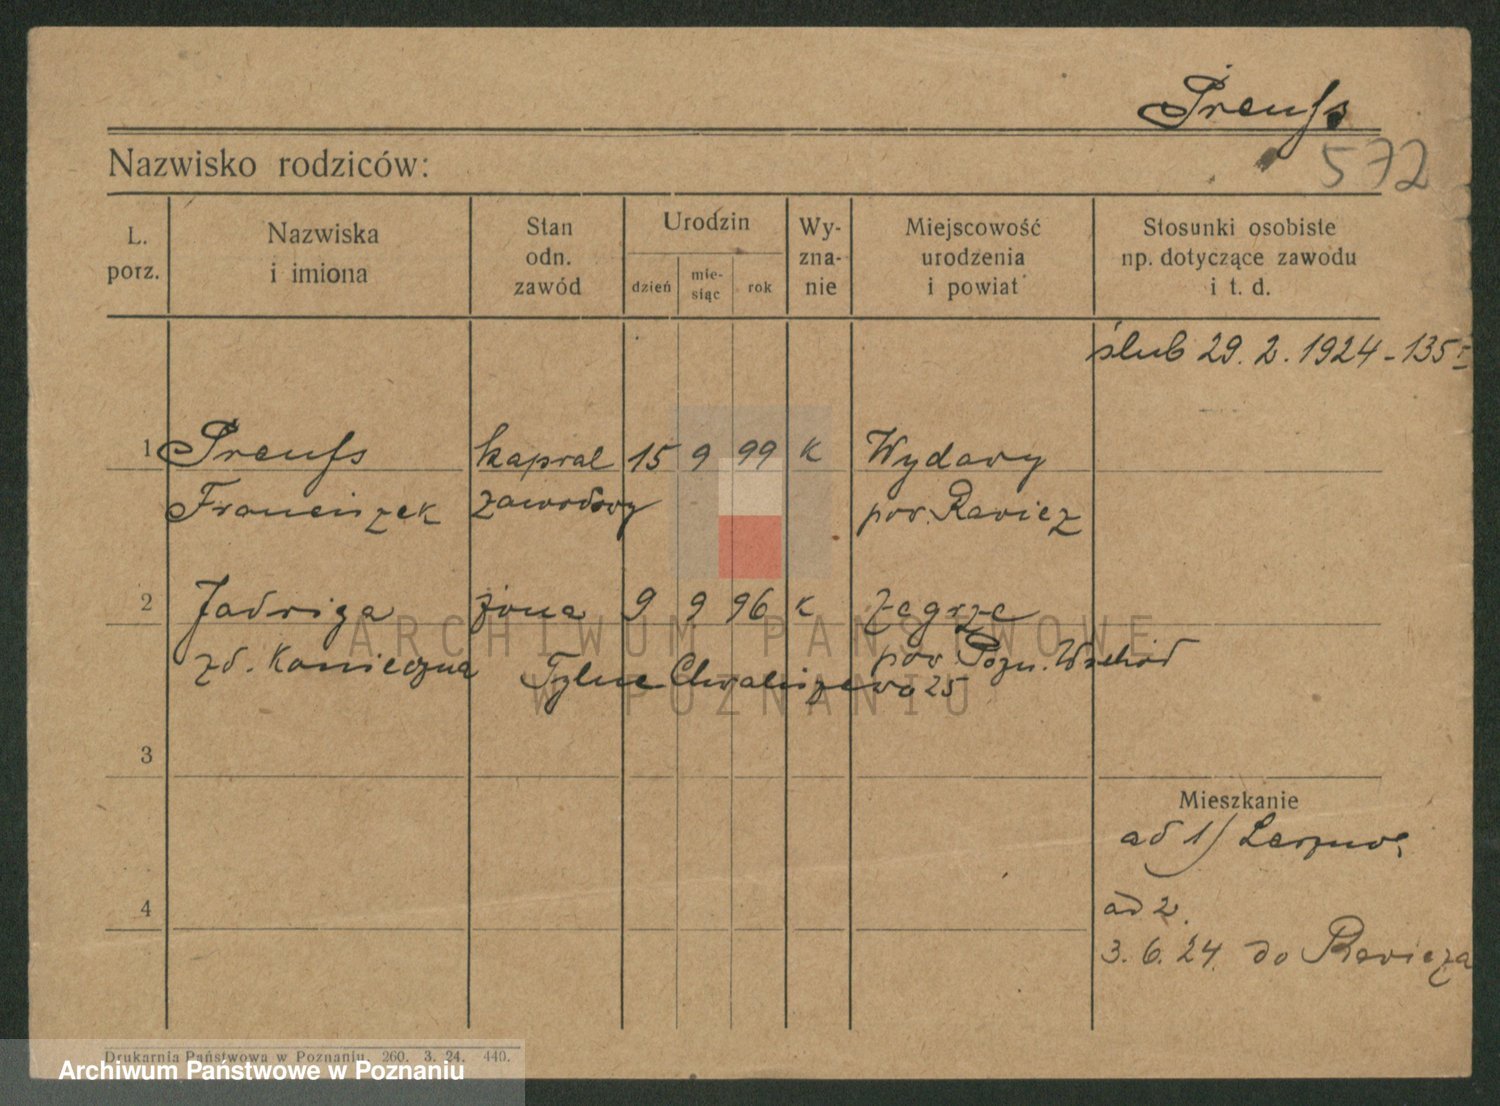 Preuss
572
Nazwisko rodziców:
L. porz.
Nazwiska i imiona
Stan odn. zawód
Urodzin
dzień
mie-siąc
rok
Wy-zna-nie
Miejscowość urodzenia i powiat
Stosunki osobiste np. dotyczące zawodu i t. d.
ślub 29. 2. 1924 - 135
1 Preuss kapral 15 9 99 k Wydawy
Franciszek zawodowy pow. Rawicz
2 Jadwiga żona 9 9 96 k Zegrze
zd. Konieczna pow. Pozn. Wschód
Tylne Chwaliszewo 25
3
Mieszkanie
ad 1)
4
ad 2.
3. 6. 24. do Rawicza
Drukarnia Państwowa w Poznaniu. 260. 3. 24. 440.
ARCHIWUM PAŃSTWOWE
W POZNANIU
Archiwum Państwowe w Poznaniu